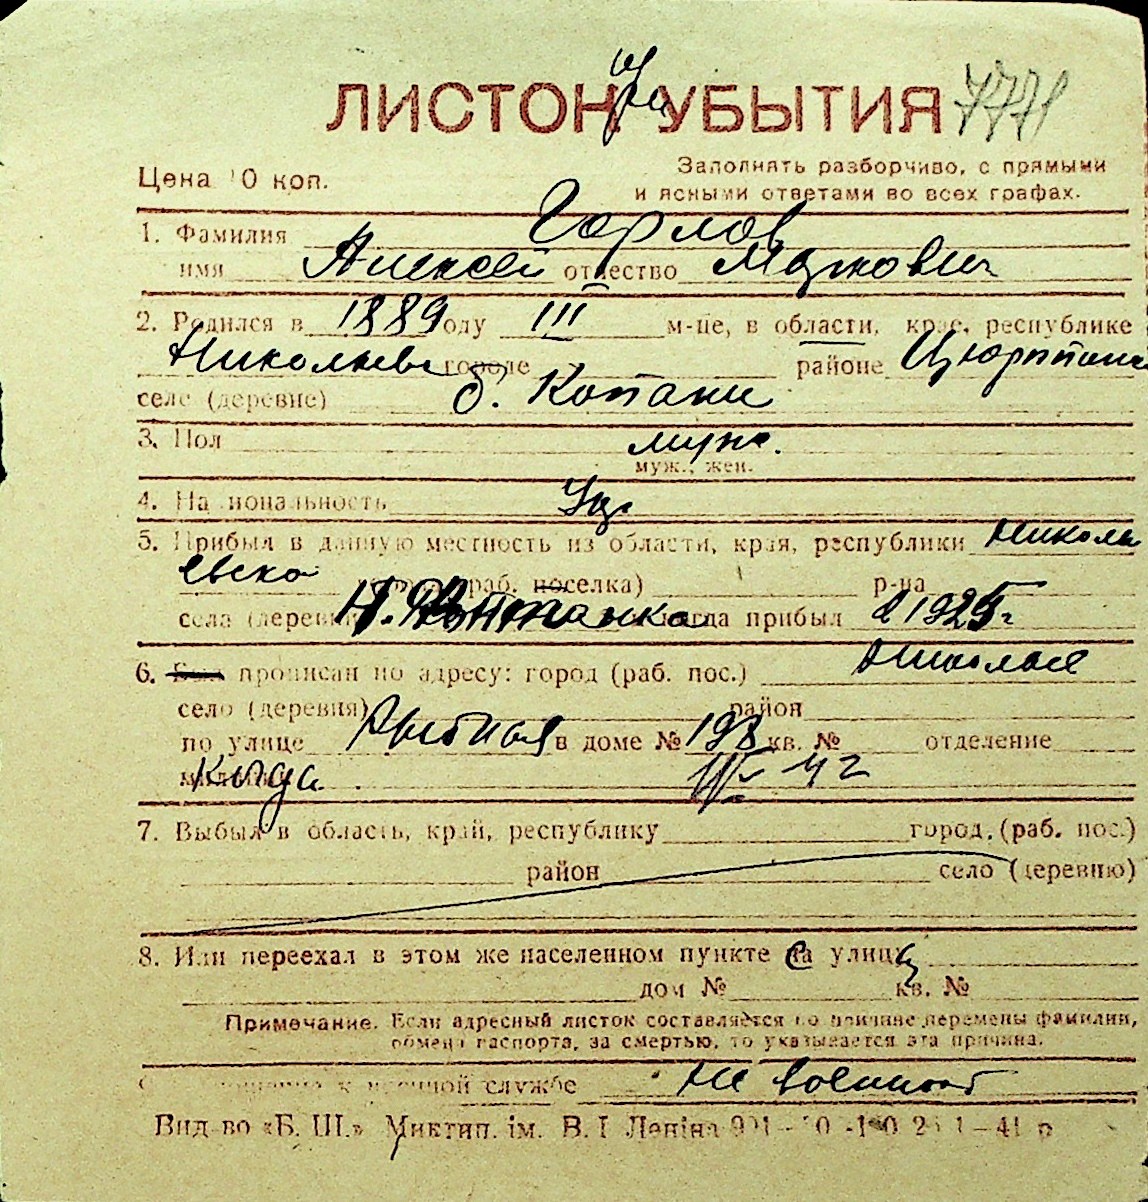 ЛИСТОК УБЫТИЯ 7771
Цена 10 коп.
Заполнять разборчиво, с прямыми
и ясными ответами во всех графах.
1. Фамилия Горлов
имя Алексей отчество Маркович
2. Родился в 1889 году III м-це, в области, крае, республике
Николаев городе районе Цюрпинс
селе (деревне) б. Копани
3. Пол муж.
муж., жен.
4. Национальность Укр
5. Прибыл в данную местность из области, края, республики Никола
евско раб. поселка) р-на
села (деревни когда прибыл в 1925 г
6. Был прописан по адресу: город (раб. пос.) Николаев
село (деревня) район
по улице Рыбная в доме № 198 кв. № отделение
милиции Куда III 42
7. Выбыл в область, край, республику город, (раб. пос.)
район село (деревню)
8. Или переехал в этом же населенном пункте на улицу
дом № кв. №
Примечание. Если адресный листок составляется по причине перемены фамилии,
обмена паспорта, за смертью, то указывается эта причина.
к военной службе не военнооб
Вид-во «Б. Ш.» Миктип. ім. В. І Леніна